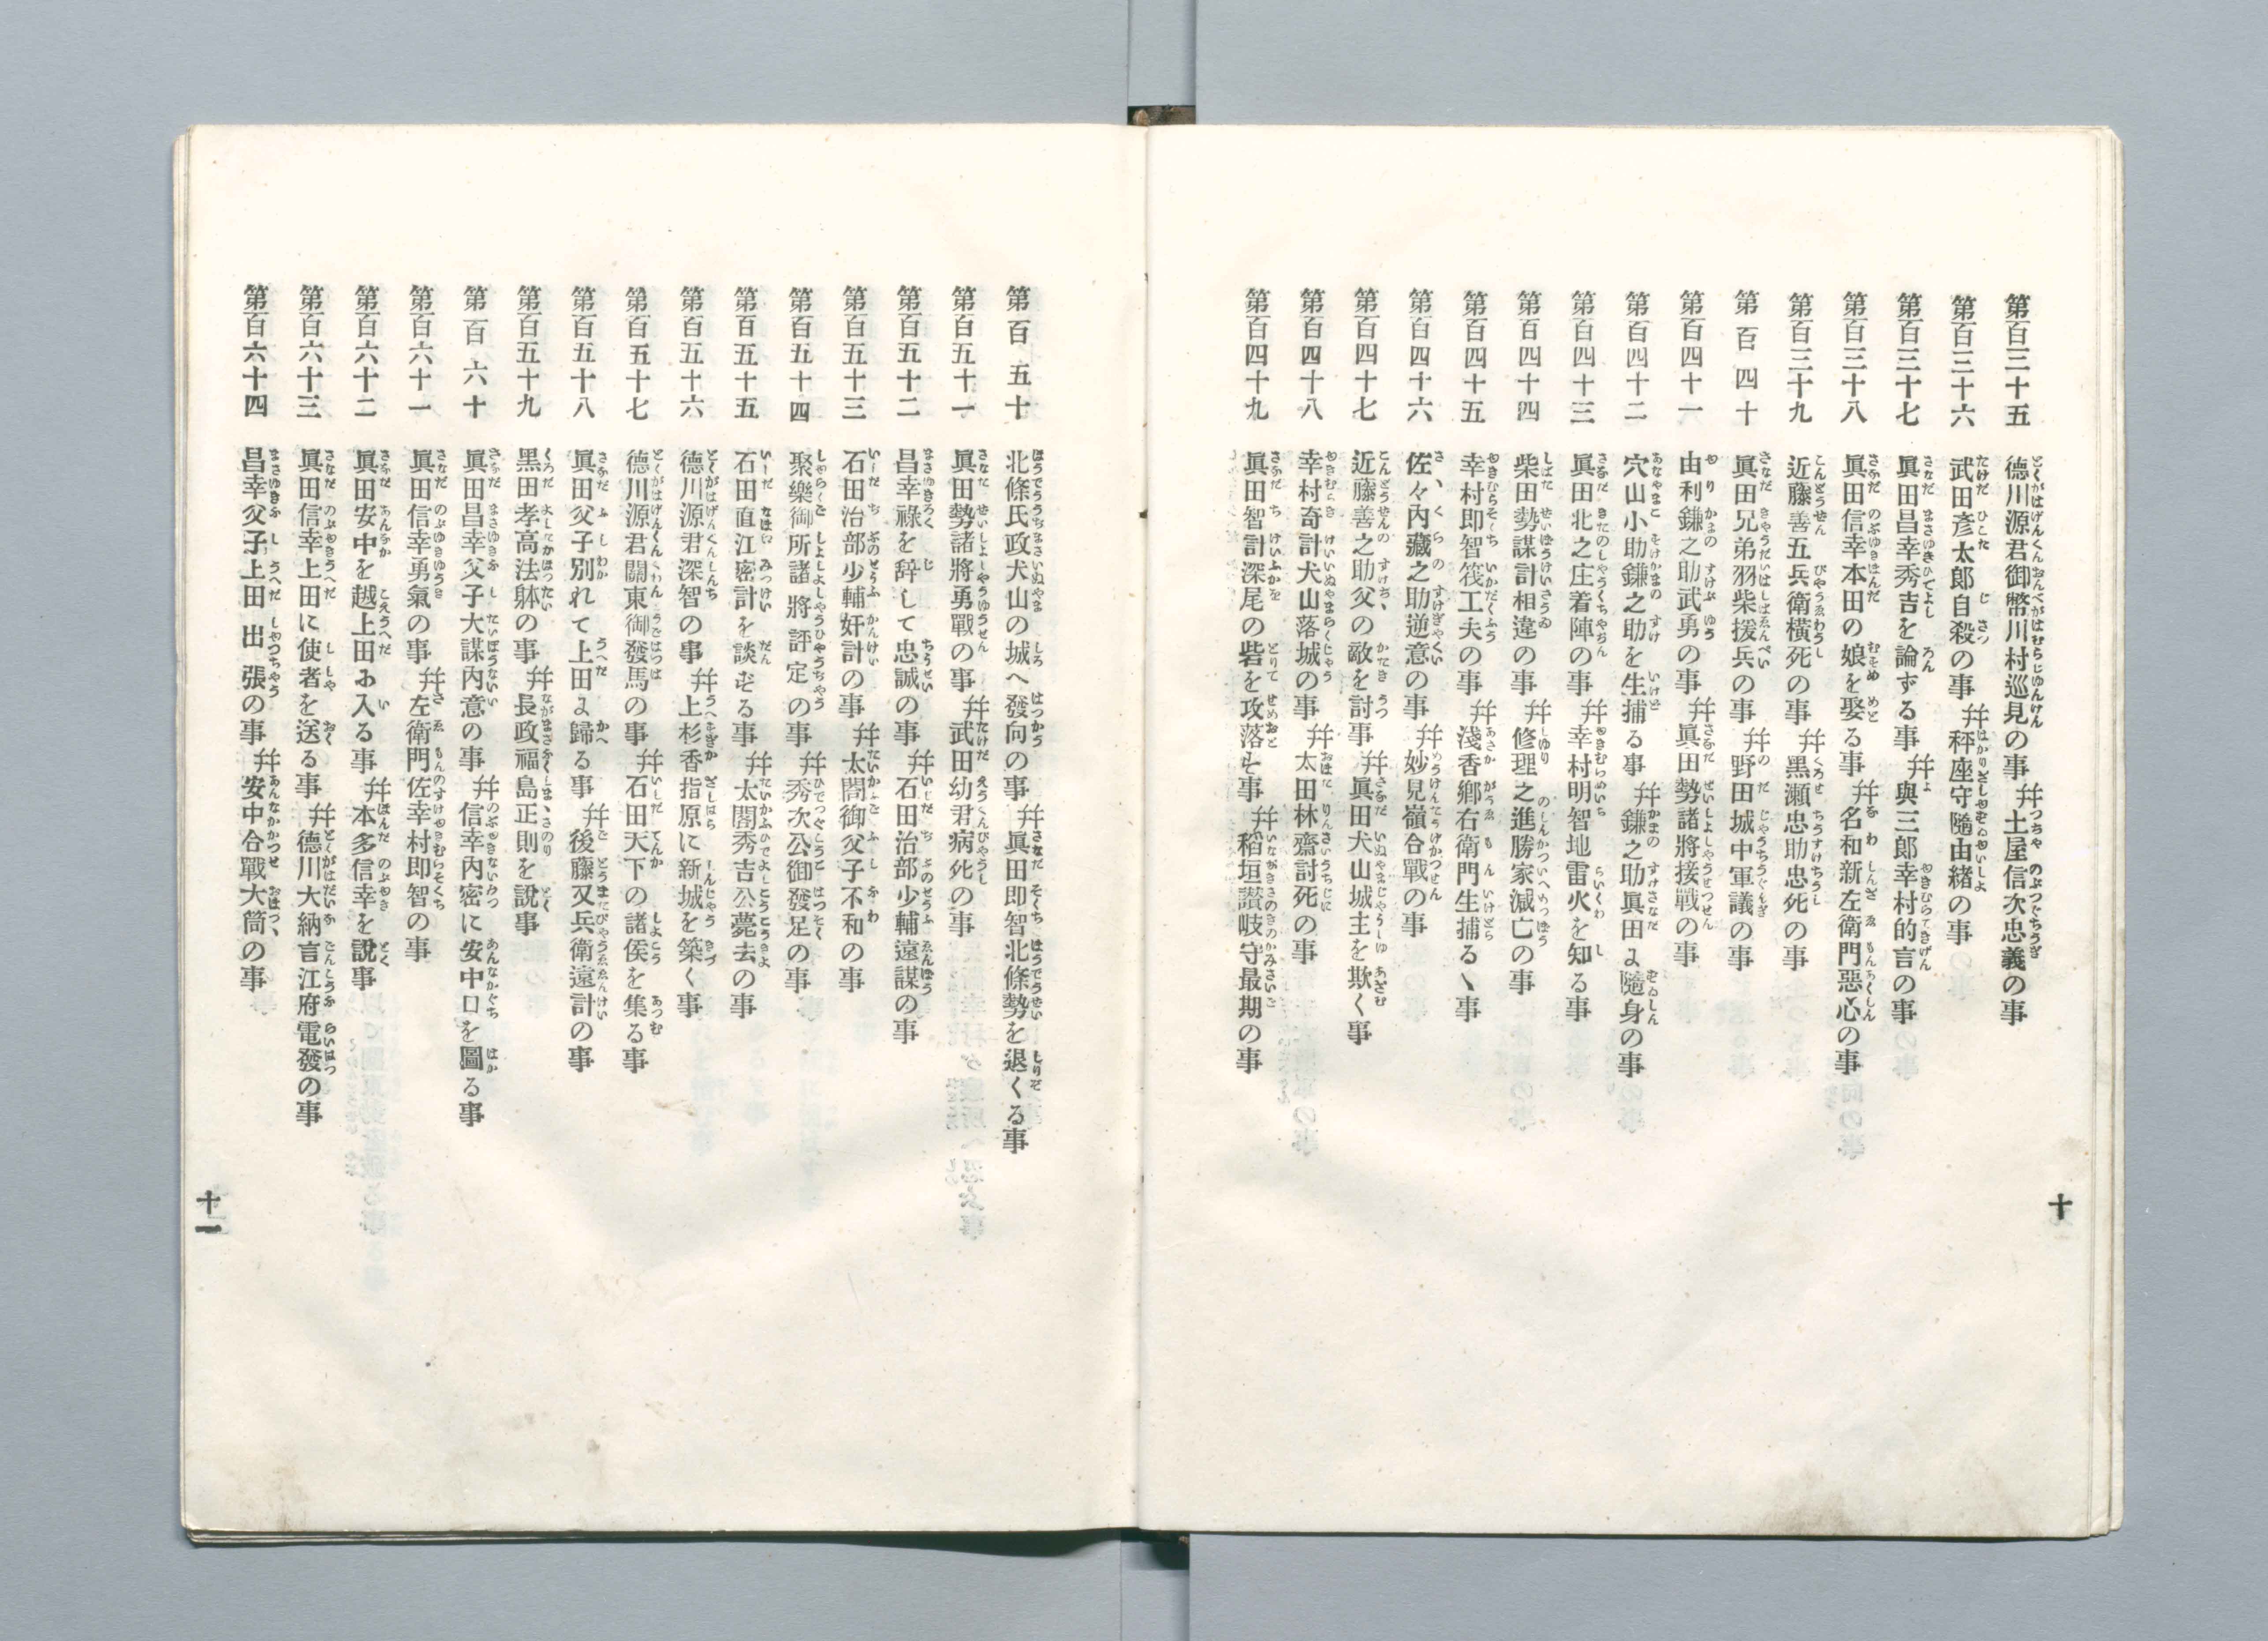 第百三十五　德川源君御幣川村巡見の事　幷土屋信次忠義の事
第百三十六　武田彦太郎自殺の事　幷秤座守隨由緒の事
第百三十七　眞田昌幸秀吉を論ずる事　幷與三郎幸村的言の事
第百三十八　眞田信幸本田の娘を娶る事　幷名和新左衛門惡心の事
第百三十九　近藤善五兵衛橫死の事　幷黑瀬忠助忠死の事
第百四十　眞田兄弟羽柴援兵の事　幷野田城中軍議の事
第百四十一　由利鎌之助武勇の事　幷眞田勢諸將接戰の事
第百四十二　穴山小助鎌之助を生捕る事　幷鎌之助眞田よ隨身の事
第百四十三　眞田北之庄着陣の事　幷幸村明智地雷火を知る事
第百四十四　柴田勢謀計相違の事　幷修理之進勝家滅亡の事
第百四十五　幸村即智筏工夫の事　幷淺香鄕右衛門生捕るヽ事
第百四十六　佐々内藏之助逆意の事　幷妙見嶺合戰の事
第百四十七　近藤善之助父の敵を討事　幷眞田犬山城主を欺く事
第百四十八　幸村奇計犬山落城の事　幷太田林齋討死の事
第百四十九　眞田智計深尾の砦を攻落を事　幷稻垣讃岐守最期の事
十
第百五十　北條氏政犬山の城へ發向の事　幷眞田即智北條勢を退くる事
第百五十一　眞田勢諸將勇戰の事　幷武田幼君病死の事
第百五十二　昌幸祿を辞して忠誠の事　幷石田治部少輔遠謀の事
第百五十三　石田治部少輔奸計の事　幷太閤御父子不和の事
第百五十四　聚樂御所諸將評定の事　幷秀次公御發足の事
第百五十五　石田直江密計を談ずる事　幷太閤秀吉公薨去の事
第百五十六　德川源君深智の事　幷上杉香指原に新城を築く事
第百五十七　德川源君關東御發馬の事　幷石田天下の諸侯を集る事
第百五十八　眞田父子別れて上田よ歸る事　幷後藤又兵衛遠計の事
第百五十九　黑田孝高法躰の事　幷長政福島正則を說事
第百六十　眞田昌幸父子大謀内意の事　幷信幸内密に安中口を圖る事
第百六十一　眞田信幸勇氣の事　幷左衛門佐幸村即智の事
第百六十二　眞田安中を越上田お入る事　幷本多信幸を說事
第百六十三　眞田信幸上田に使者を送る事　幷德川大納言江府電發の事
第百六十四　昌幸父子上田出張の事　幷安中合戰大筒の事
十一